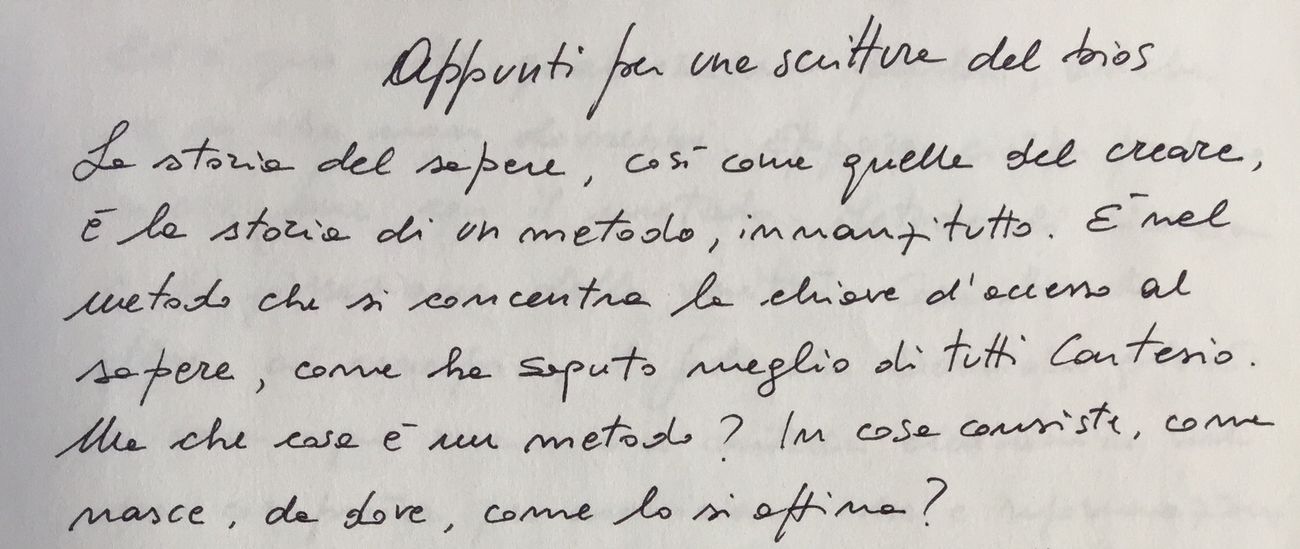 Appunti per una scrittura del bios
La storia del sapere, così come quella del creare,
è la storia di un metodo, innanzitutto. È nel
metodo che si concentra la chiave d'accesso al
sapere, come ha saputo meglio di tutti Cartesio.
Ma che cosa è un metodo? In cosa consiste, come
nasce, da dove, come lo si affina?